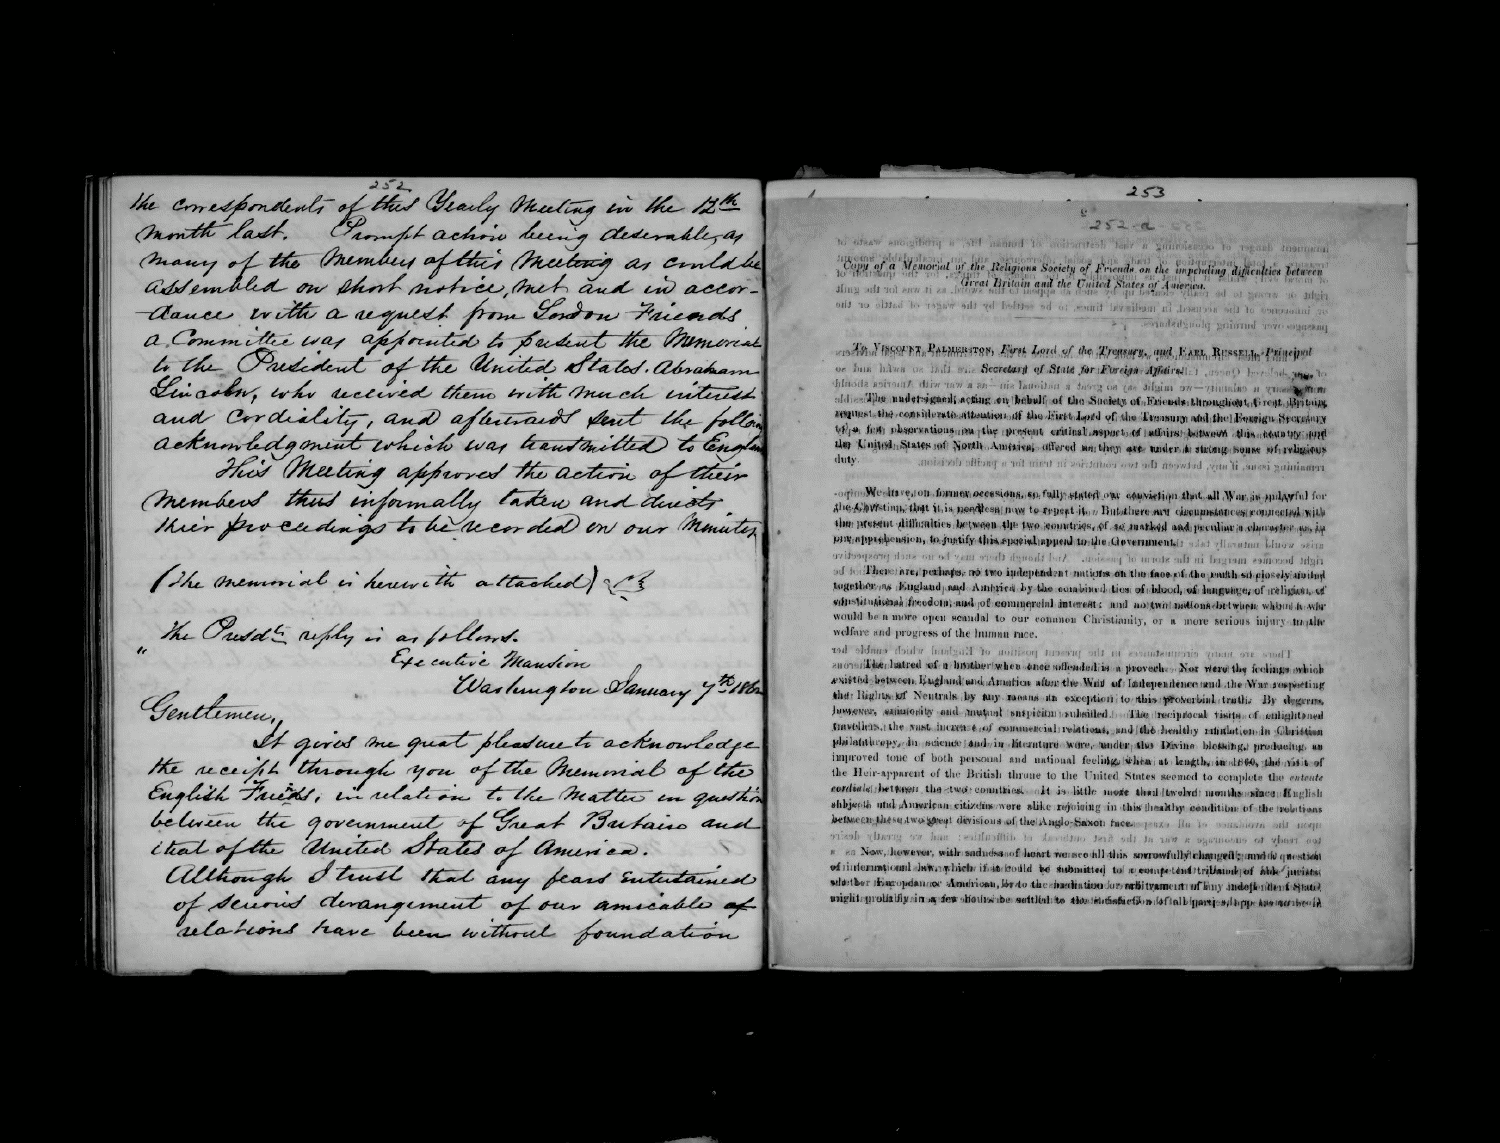 252
the correspondents of this Yearly Meeting in the 12th
month last. Prompt action being desirable, as
many of the Members of this Meeting as could be
assembled on short notice, met and in accor-
dance with a request from London Friends
a Committee was appointed to present the Memorial
to the President of the United States. Abraham
Lincoln, who received them with much interest
and cordiality, and afterwards sent the
acknowledgment which was transmitted to
This Meeting approves the action of their
members thus informally taken and directs
their proceedings to be recorded on our Minutes
(The memorial is herewith attached)
The Presdts reply is as follows.
" Executive Mansion
Washington January 7th
Gentlemen,
It gives me great pleasure to acknowledge
the receipt through you of the Memorial of the
English Friends, in relation to the Matter in question
between the government of Great Britain and
that of the United States of America.
Although I trust that any fears entertained
of serious derangement of our amicable of
relations have been without foundation
253
252-a
Copy of a Memorial of the Religious Society of Friends on the impending difficulties between
Great Britain and the United States of America.
To Viscount Palmerston, First Lord of the Treasury, and Earl Russell, Principal
Secretary of State for Foreign Affairs.
The undersigned, acting on behalf of the Society of Friends throughout Great Britain,
request the considerate attention of the First Lord of the Treasury and the Foreign Secretary
to a few observations on the present critical aspect of affairs between this country and
the United States of North America, offered as they are under a strong sense of religious
duty.
We have, on former occasions, so fully stated our conviction that all War is unlawful for
the Christian, that it is needless now to repeat it. But there are circumstances connected with
the present difficulties between the two countries, of so marked and peculiar a character as, in
our apprehension, to justify this special appeal to the Government.
There are, perhaps, no two independent nations on the face of the earth so closely united
together as England and America by the combined ties of blood, of language, of religion, of
constitutional freedom, and of commercial interest: and no two nations between whom a war
would be a more open scandal to our common Christianity, or a more serious injury to the
welfare and progress of the human race.
The hatred of a brother when once offended is a proverb. Nor were the feelings which
existed between England and America after the War of Independence and the War respecting
the Rights of Neutrals by any means an exception to this proverbial truth. By degrees,
however, animosity and mutual suspicion subsided. The reciprocal visits of enlightened
travellers, the vast increase of commercial relations, and the healthy emulation in Christian
philanthropy, in science and in literature were, under the Divine blessing, producing an
improved tone of both personal and national feeling, when at length, in 1860, the visit of
the Heir-apparent of the British throne to the United States seemed to complete the entente
cordiale between the two countries. It is little more than twelve months since English
subjects and American citizens were alike rejoicing in this healthy condition of the relations
between these two great divisions of the Anglo-Saxon race.
Now, however, with sadness of heart we see all this sorrowfully changed; and a question
of international law, which if it could be submitted to a competent tribunal of able jurists,
whether European or American, or to the mediation or arbitrament of any independent State,
might probably in a few hours be settled to the satisfaction of all parties,